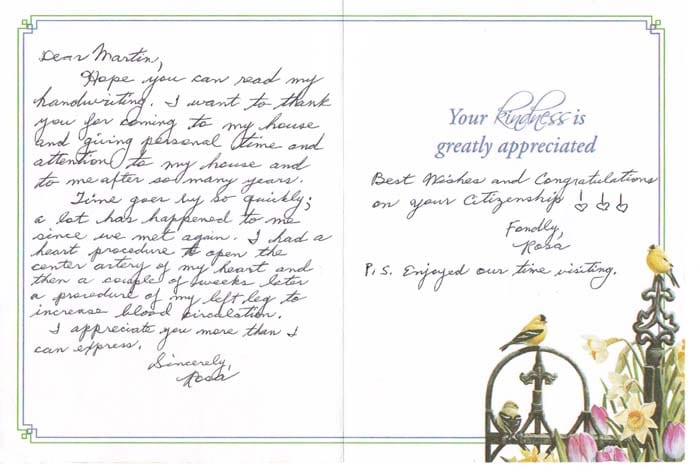 Dear Martin,
Hope you can read my
handwriting. I want to thank
you for coming to my house
and giving personal time and
attention to my house and
to me after so many years.
Time goes by so quickly;
a lot has happened to me
since we met again. I had a
heart procedure to open the
center artery of my heart and
then a couple of weeks later
a procedure of my left leg to
increase blood circulation.
I appreciate you more than I
can express.
Sincerely,
Rosa
Your kindness is
greatly appreciated
Best Wishes and Congratulations
on your Citizenship !!!
Fondly,
Rosa
P.S. Enjoyed our time visiting.